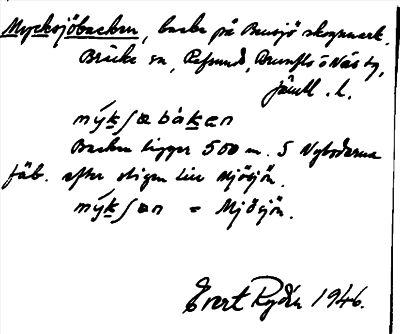 Mycksjöbacken, backe på Bensjö skogsmark.
Bräcke sn, Refsunds, Brunflo o Näs tg,
Jämtl. l.
mýkʃøbàkən
Backen ligger 500 m. S Nybodarna
fäb. efter stigen till Mjösjön.
mýkʃøn = Mjösjön.
Evert Rydén 1946.